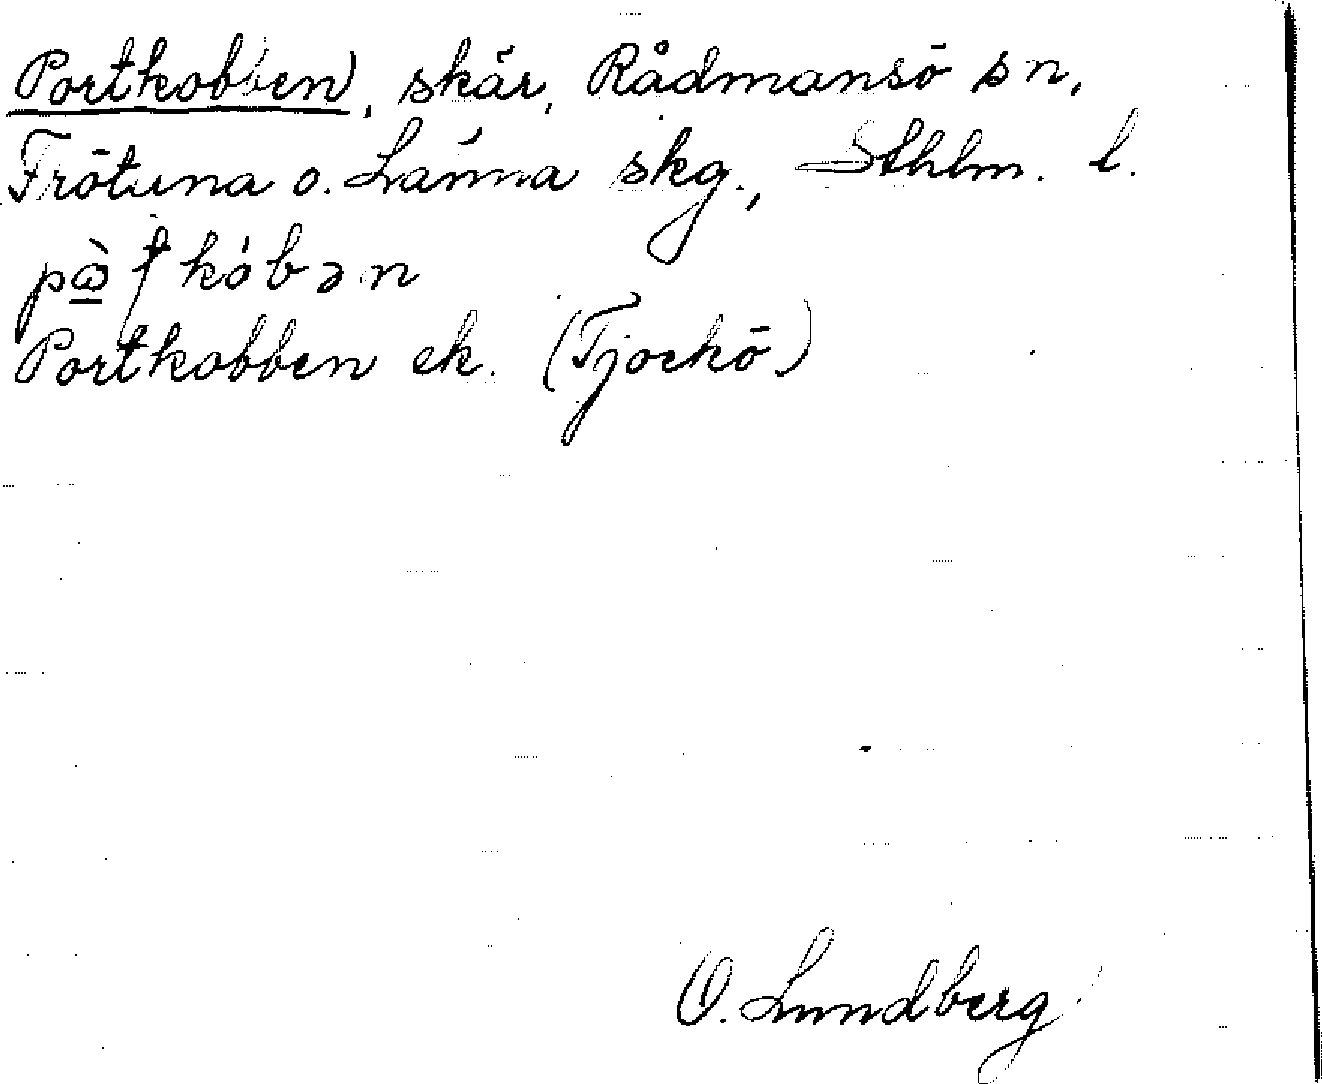 Portkobben, skär, Rådmansö sn,
Frötuna o. Länna skg., Sthlm. l.
Portkobben ek. (Tjockö)
O. Lundberg